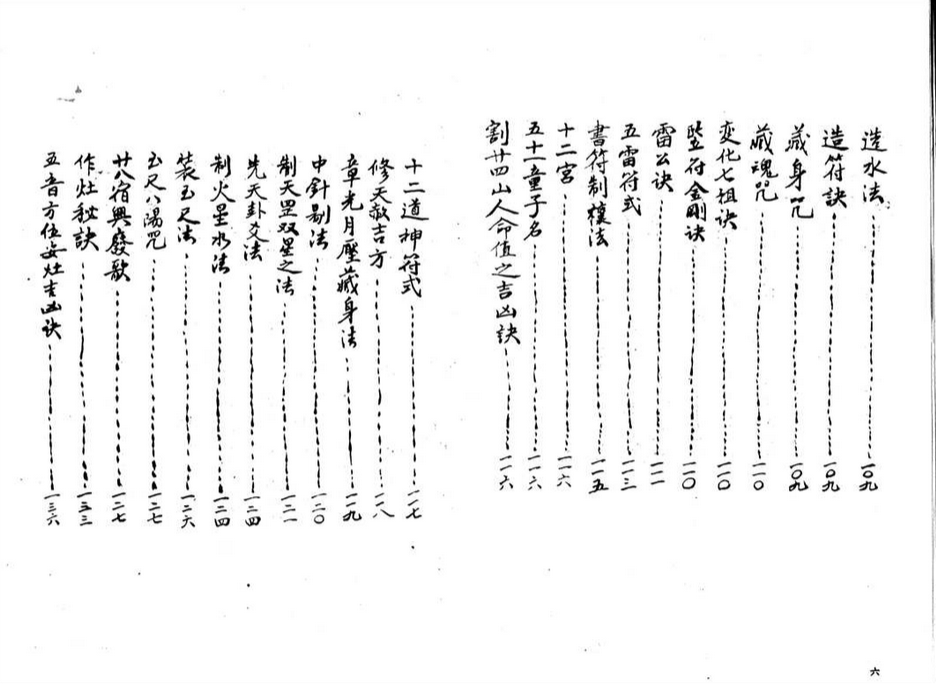 造水法 一〇九
造符訣 一〇九
藏身咒 一〇九
藏魂咒 一一〇
变化七祖诀 一一〇
墪符金剛诀 一一〇
雷公诀 一一一
五雷符式 一一三
書符制禳法 一一五
十二宮 一一六
五十二童子名 一一六
割廿四山人命值之吉凶訣 一一六
十二道神符式 一一七
修天赦吉方 一一八
章光月壓藏身法 一一九
中針剔法 一二〇
制天罡双星之法 一二一
先天卦爻法 一二四
制火星水法 一二四
装玉尺法 一二六
玉尺八陽咒 一二七
廿八宿興廢歌 一二七
作灶秘訣 一三三
五音方位安灶吉凶訣 一三六
六